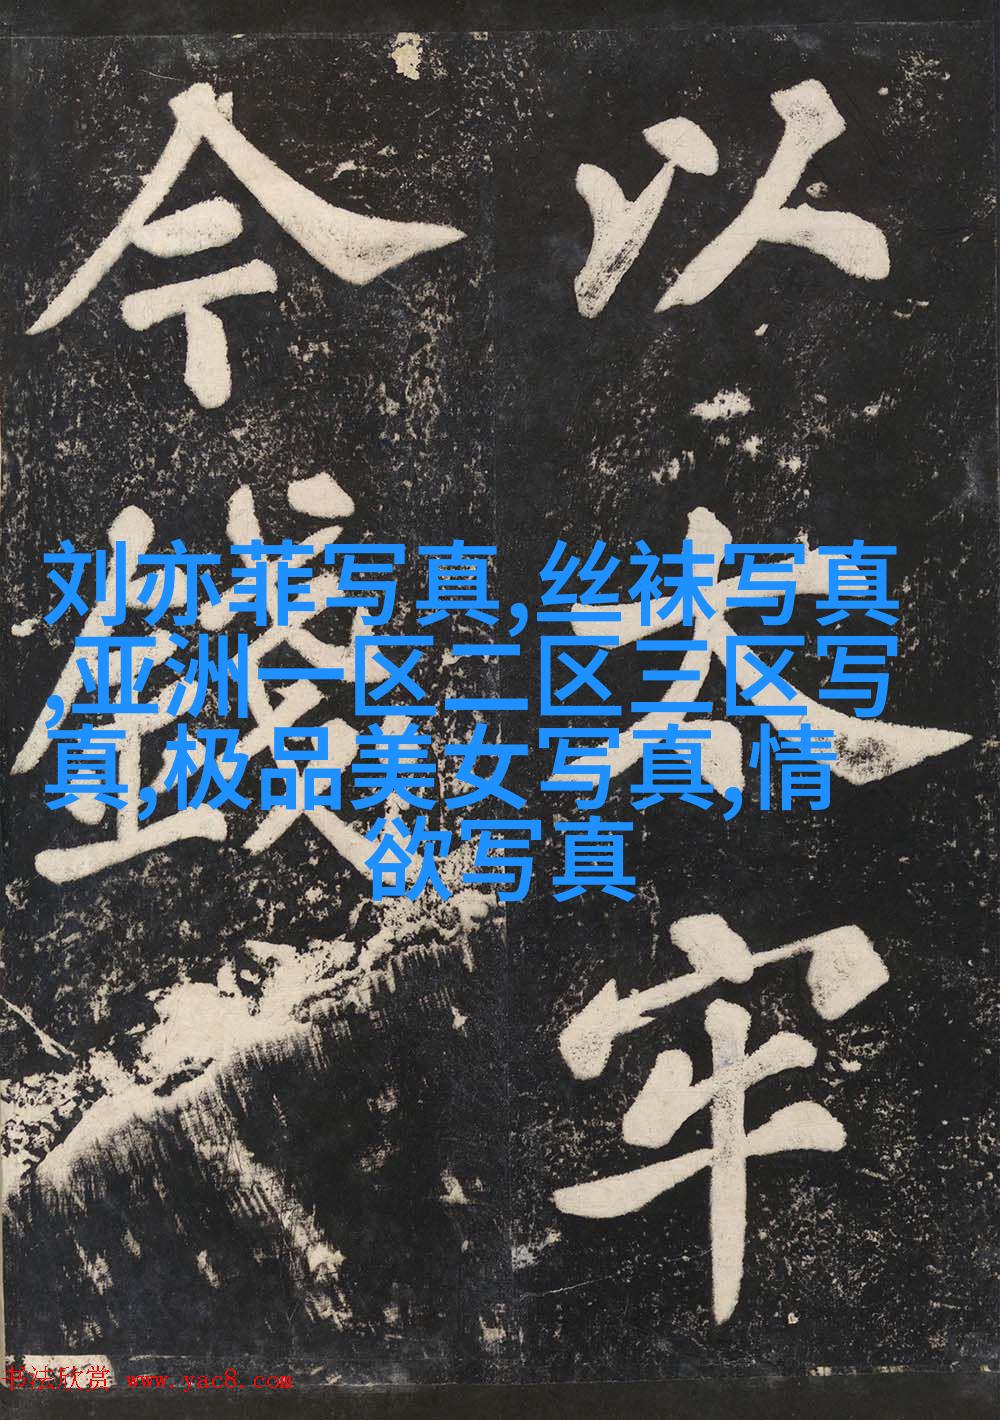 以太牢
今
刘亦菲写真,丝袜写真
,亚洲一区二区三区写
真,极品美女写真,情
欲写真
书法欣赏 www.yac8.com